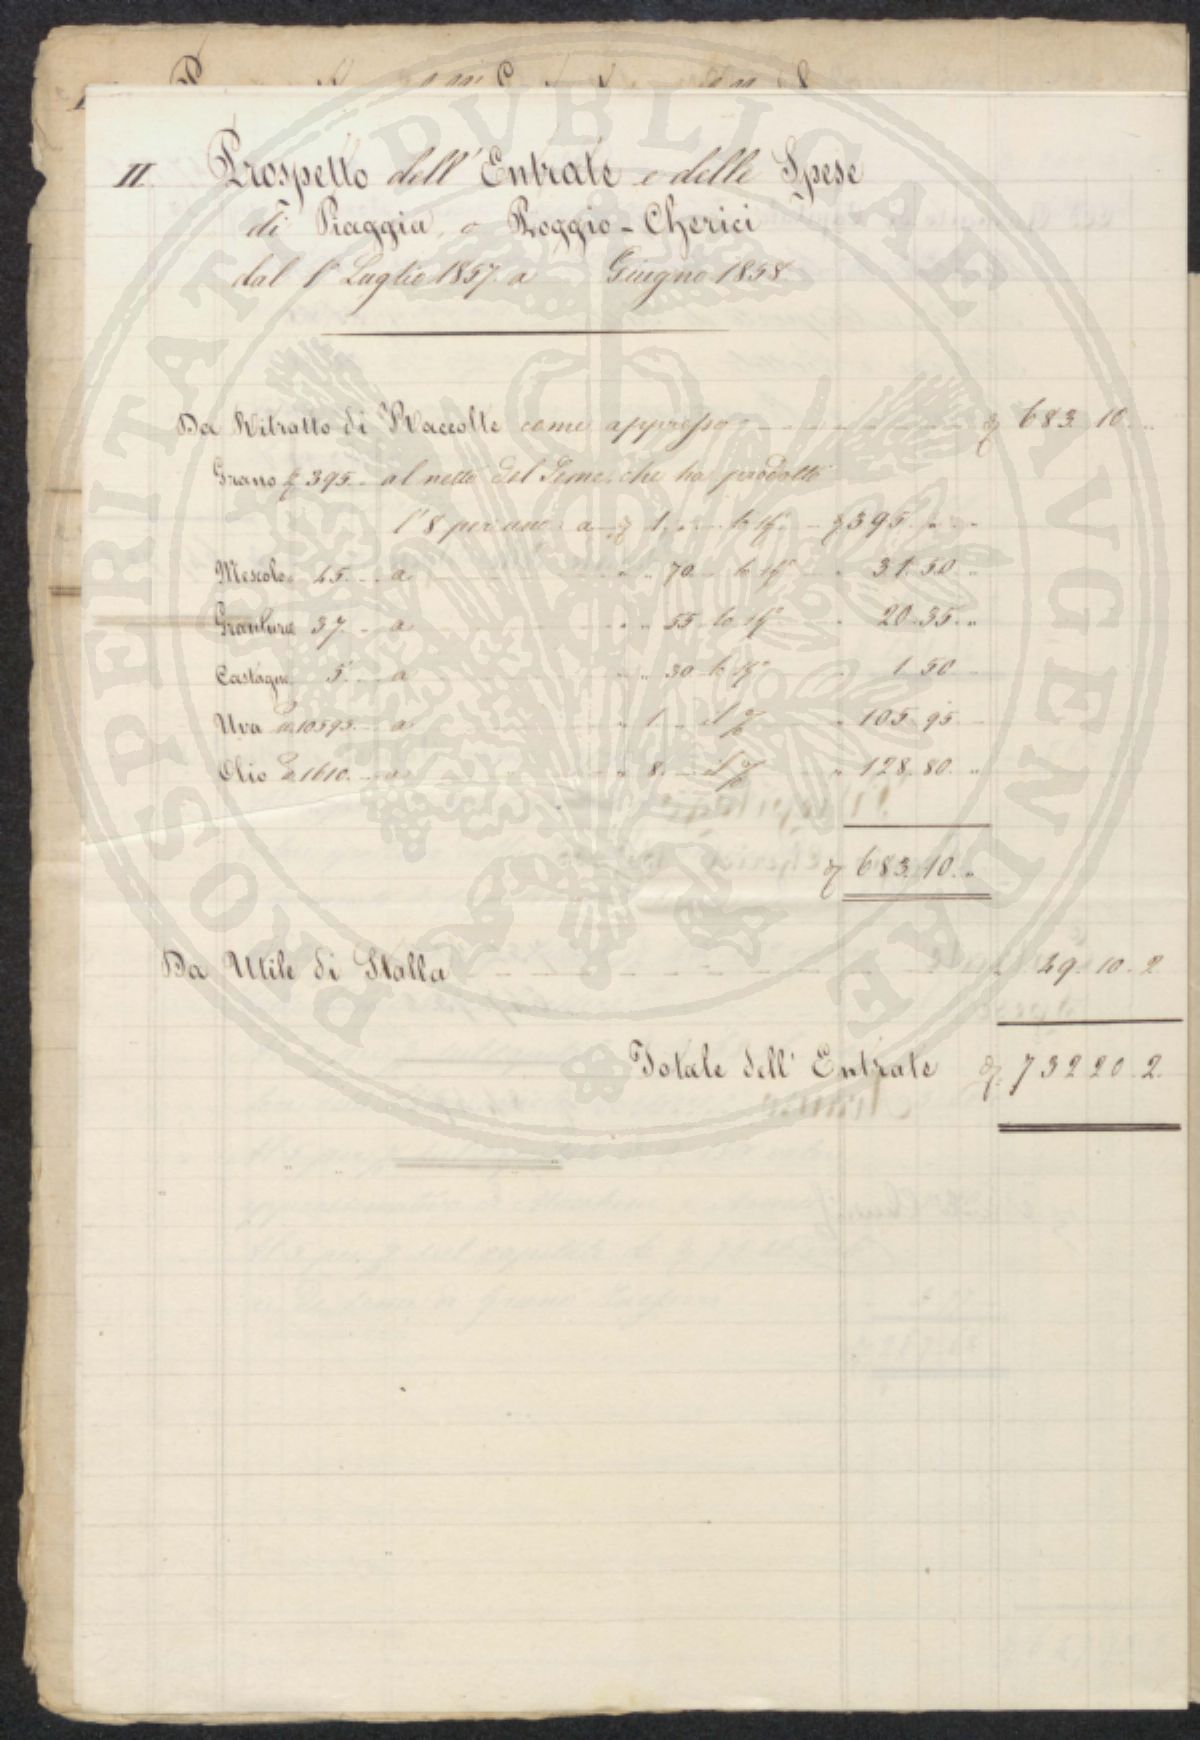 II. Prospetto dell' Entrate e delle Spese
di Piaggia, o Poggio-Cherici
dal 1° Luglio 1857. a Giugno 1858.
Da Ritratto di Raccolte come appresso 683. 10. „
Grano 395. al netto del Seme, che ha prodotto
l' 8 per uno a 1. „ lo 395. „ „
Mescolo 45. a „ „ 70 lo „ 31. 50 „
Granturco 37. a „ „ 55 lo „ 20. 35. „
Castagne 5. a „ „ 30 lo 1. 50
Uva 10595. a „ 1. „ il % „ 105. 95
Olio 1610. a „ 8. „ il % „ 128. 80. „
683. 10. „
Da Utile di Stalla „ 49. 10. 2
Totale dell' Entrate 732 20. 2.
PROSPERITATI PVBLICAE AVGENDAE